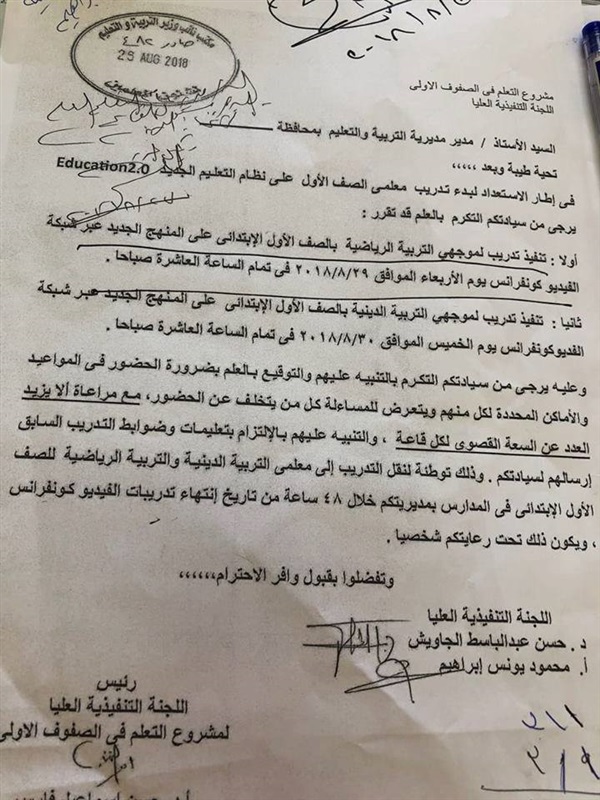 مكتب نائب وزير التربية والتعليم
صادر ٤٨٢
25 AUG 2018
مشروع التعلم فى الصفوف الاولى
اللجنة التنفيذية العليا
السيد الأستاذ / مدير مديرية التربية والتعليم بمحافظة
تحية طيبة وبعد ،،،،،
فى إطار الاستعداد لبدء تدريب معلمى الصف الأول على نظام التعليم الجديد Education2.0
يرجى من سيادتكم التكرم بالعلم قد تقرر :
أولا : تنفيذ تدريب لموجهي التربية الرياضية بالصف الأول الإبتدائى على المنهج الجديد عبر شبكة
الفيديو كونفرانس يوم الأربعاء الموافق ٢٠١٨/٨/٢٩ فى تمام الساعة العاشرة صباحا .
ثانيا : تنفيذ تدريب لموجهي التربية الدينية بالصف الأول الإبتدائى على المنهج الجديد عبر شبكة
الفديوكونفرانس يوم الخميس الموافق ٢٠١٨/٨/٣٠ فى تمام الساعة العاشرة صباحا .
وعليه يرجى من سيادتكم التكرم بالتنبيه عليهم والتوقيع بالعلم بضرورة الحضور فى المواعيد
والأماكن المحددة لكل منهم ويتعرض للمساءلة كل من يتخلف عن الحضور، مع مراعاة ألا يزيد
العدد عن السعة القصوى لكل قاعة ، والتنبيه عليهم بالإلتزام بتعليمات وضوابط التدريب السابق
إرسالهم لسيادتكم . وذلك توطئة لنقل التدريب إلى معلمى التربية الدينية والتربية الرياضية للصف
الأول الإبتدائى فى المدارس بمديريتكم خلال ٤٨ ساعة من تاريخ إنتهاء تدريبات الفيديو كونفرانس
، ويكون ذلك تحت رعايتكم شخصيا .
وتفضلوا بقبول وافر الاحترام،،،،،،
اللجنة التنفيذية العليا
د . حسن عبدالباسط الجاويش
أ . محمود يونس إبراهيم
رئيس
اللجنة التنفيذية العليا
لمشروع التعلم فى الصفوف الاولى